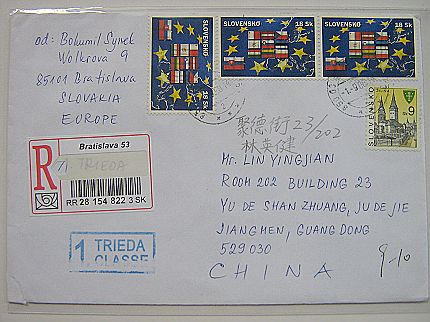 od: Bohumil Synek
Wolkrova 9
85101 Bratislava
SLOVAKIA
EUROPE
SLOVENSKO
18 Sk
SLOVENSKO 18 Sk
SLOVENSKO 18 Sk
SLOVENSKO
9 Sk
聚德街23/202
林英健
R
Bratislava 53
1 TRIEDA
RR 28 154 822 3 SK
1 TRIEDA
CLASSE
Mr. LIN YINGJIAN
ROOM 202 BUILDING 23
YU DE SHAN ZHUANG, JU DE JIE
JIANGMEN, GUANGDONG
529030
CHINA
9-10